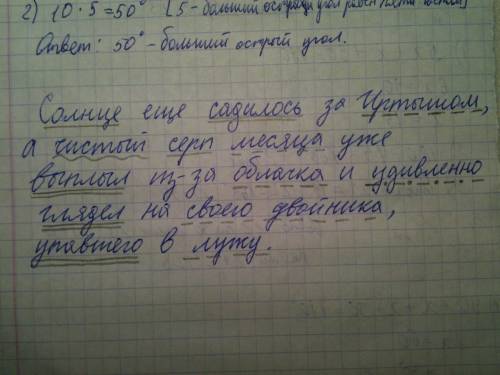 2) 10 · 5 = 50° [5 - больший острый угол равен
Ответ: 50° - больший острый угол.
Солнце еще садилось за Иртышом,
а чистый серп месяца уже
выплыл из-за облачка и удивленно
глядел на своего двойника,
упавшего в лужу.